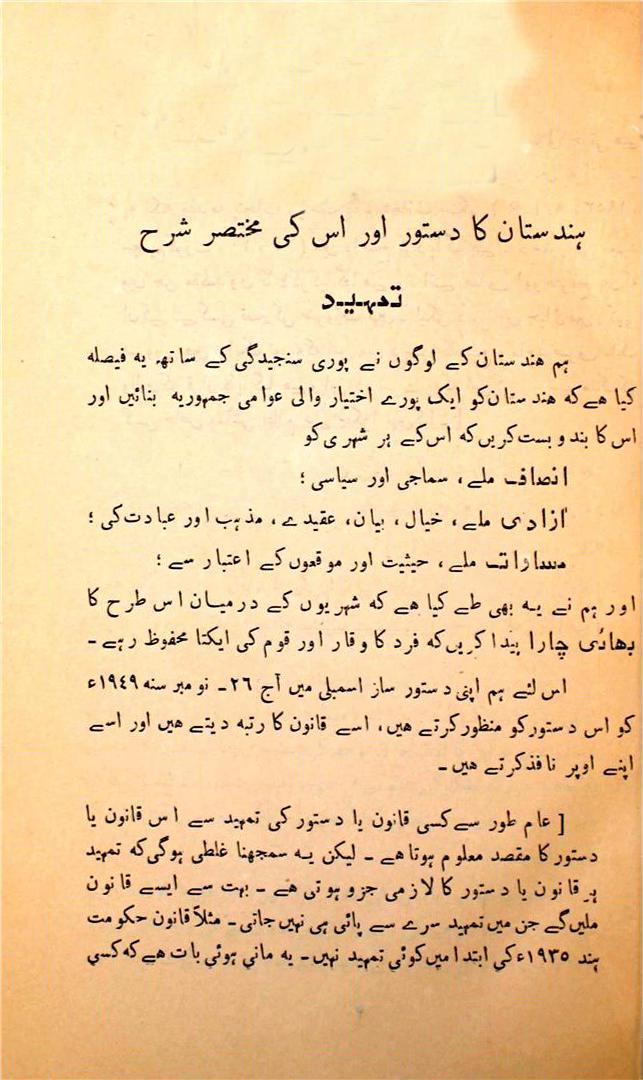 ہندستان کا دستور اور اس کی مختصر شرح
تمہید
ہم ھندستان کے لوگوں نے پوری سنجیدگی کے ساتھ یہ فیصلہ
کیا ھے کہ ھندستان کو ایک پورے اختیار والی عوامی جمہوریہ بنائیں اور
اس کا بندوبست کریں کہ اس کے ہر شہری کو
انصاف ملے، سماجی اور سیاسی؛
آزادی ملے، خیال، بیان، عقیدے، مذہب اور عبادت کی؛
مساوات ملے، حیثیت اور موقعوں کے اعتبار سے؛
اور ہم نے یہ بھی طے کیا ھے کہ شہریوں کے درمیان اس طرح کا
بھائی چارا پیدا کریں کہ فرد کا وقار اور قوم کی ایکتا محفوظ رہے ۔
اس لئے ہم اپنی دستور ساز اسمبلی میں آج ۲۶۔ نومبر سنہ ۱۹۴۹ء
کو اس دستور کو منظور کرتے ھیں، اسے قانون کا رتبہ دیتے ھیں اور اسے
اپنے اوپر نافذ کرتے ھیں ۔
[ عام طور سے کسی قانون یا دستور کی تمہید سے اس قانون یا
دستور کا مقصد معلوم ہوتا ھے ۔ لیکن یہ سمجھنا غلطی ہوگی کہ تمہید
ہر قانون یا دستور کا لازمی جزو ہوتی ھے ۔ بہت سے ایسے قانون
ملیں گے جن میں تمہید سرے سے پائی ہی نہیں جاتی ۔ مثلاً قانون حکومت
ہند ۱۹۳۵ء کی ابتدا میں کوئی تمہید نہیں ۔ یہ مانی ہوئی بات ھے کہ کسی